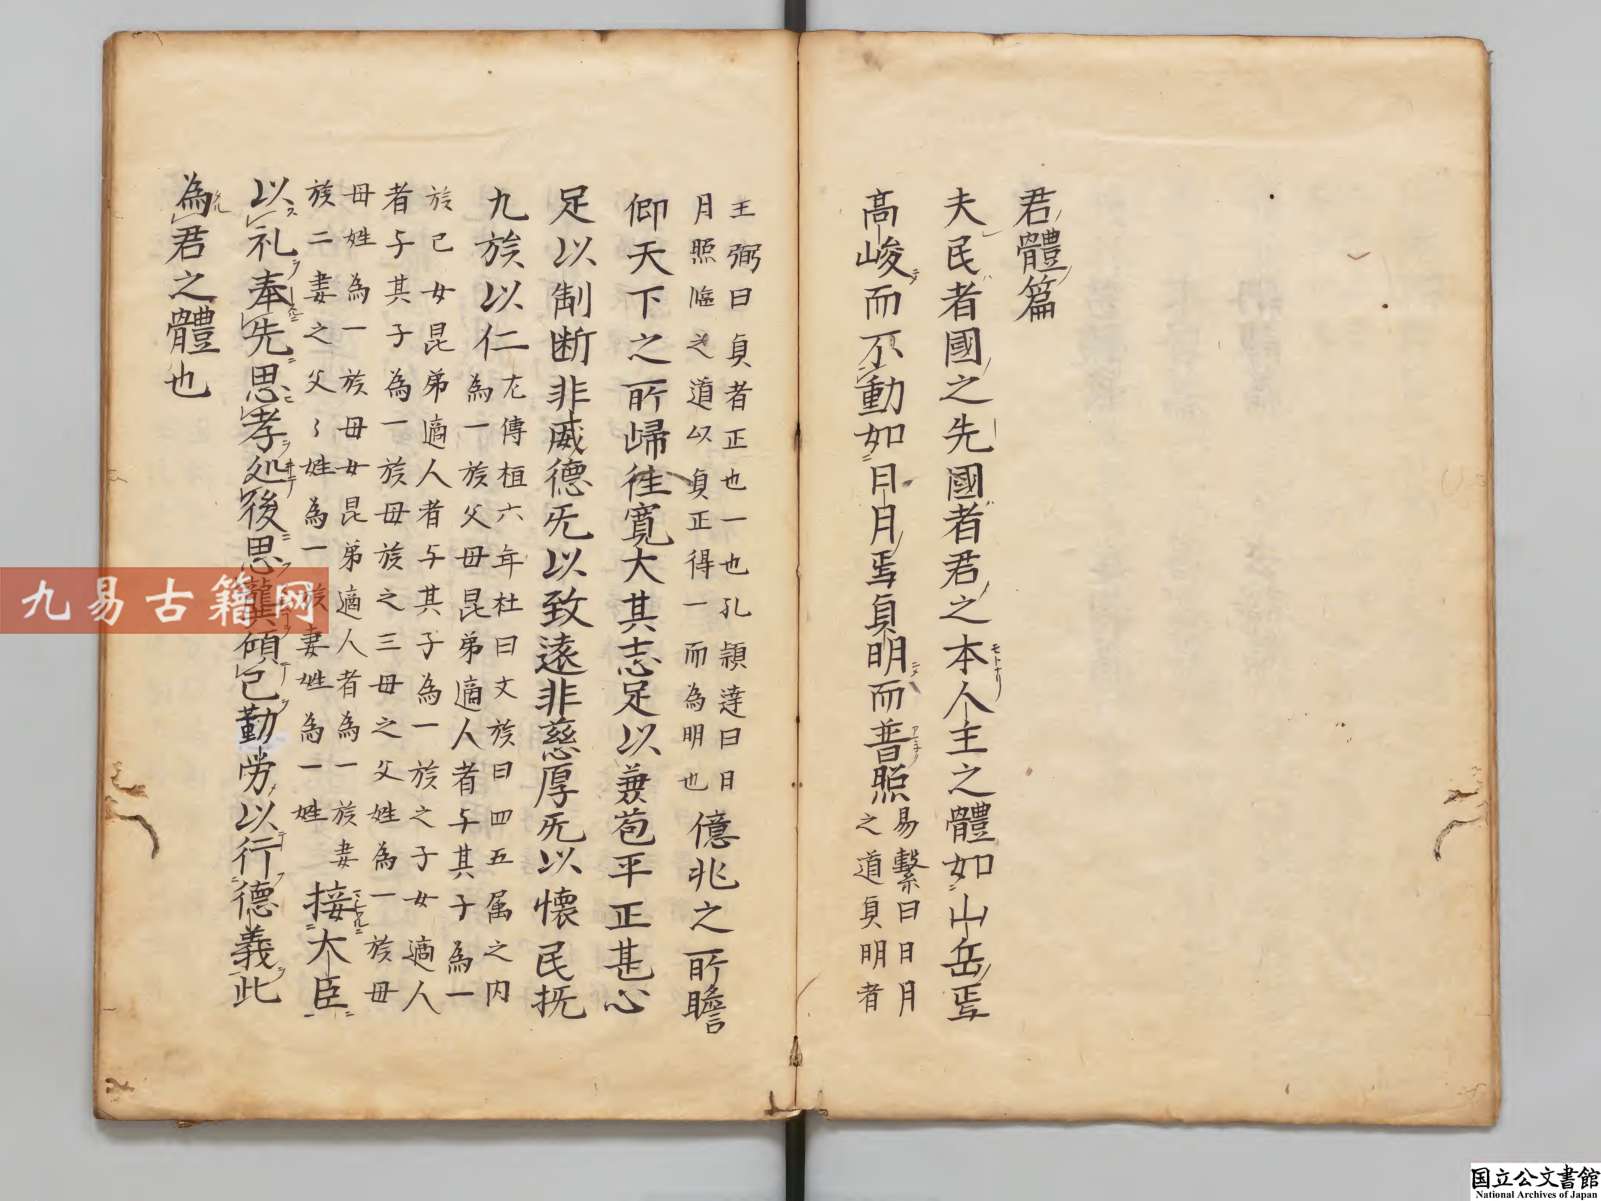 君體篇
夫民者國之先國者君之本人主之體如山岳焉
高峻而不動如日月焉貞明而普照易繫曰日月
之道貞明者
王弼曰貞者正也一也孔頴達曰日
月照臨之道以貞正得一而為明也
億兆之所瞻
仰天下之所歸徃寛大其志足以兼苞平正甚心
足以制断非威德旡以致遠非慈厚旡以懐民抚
九族以仁
左傳桓六年杜曰文族曰四五属之内
為一族父母昆弟適人者与其子為一
族已女昆弟適人者与其子為一族之子女適人
者与其子為一族母族之三母之父姓為一族母
母姓為一族母女昆弟適人者為一族妻
族二妻之父〻姓為一族妻姓為一姓
接大臣
以礼奉先思孝処後思龔傾己勤労以行德義此
為君之體也
モトナリ
九易古籍网
国立公文書館
National Archives of Japan